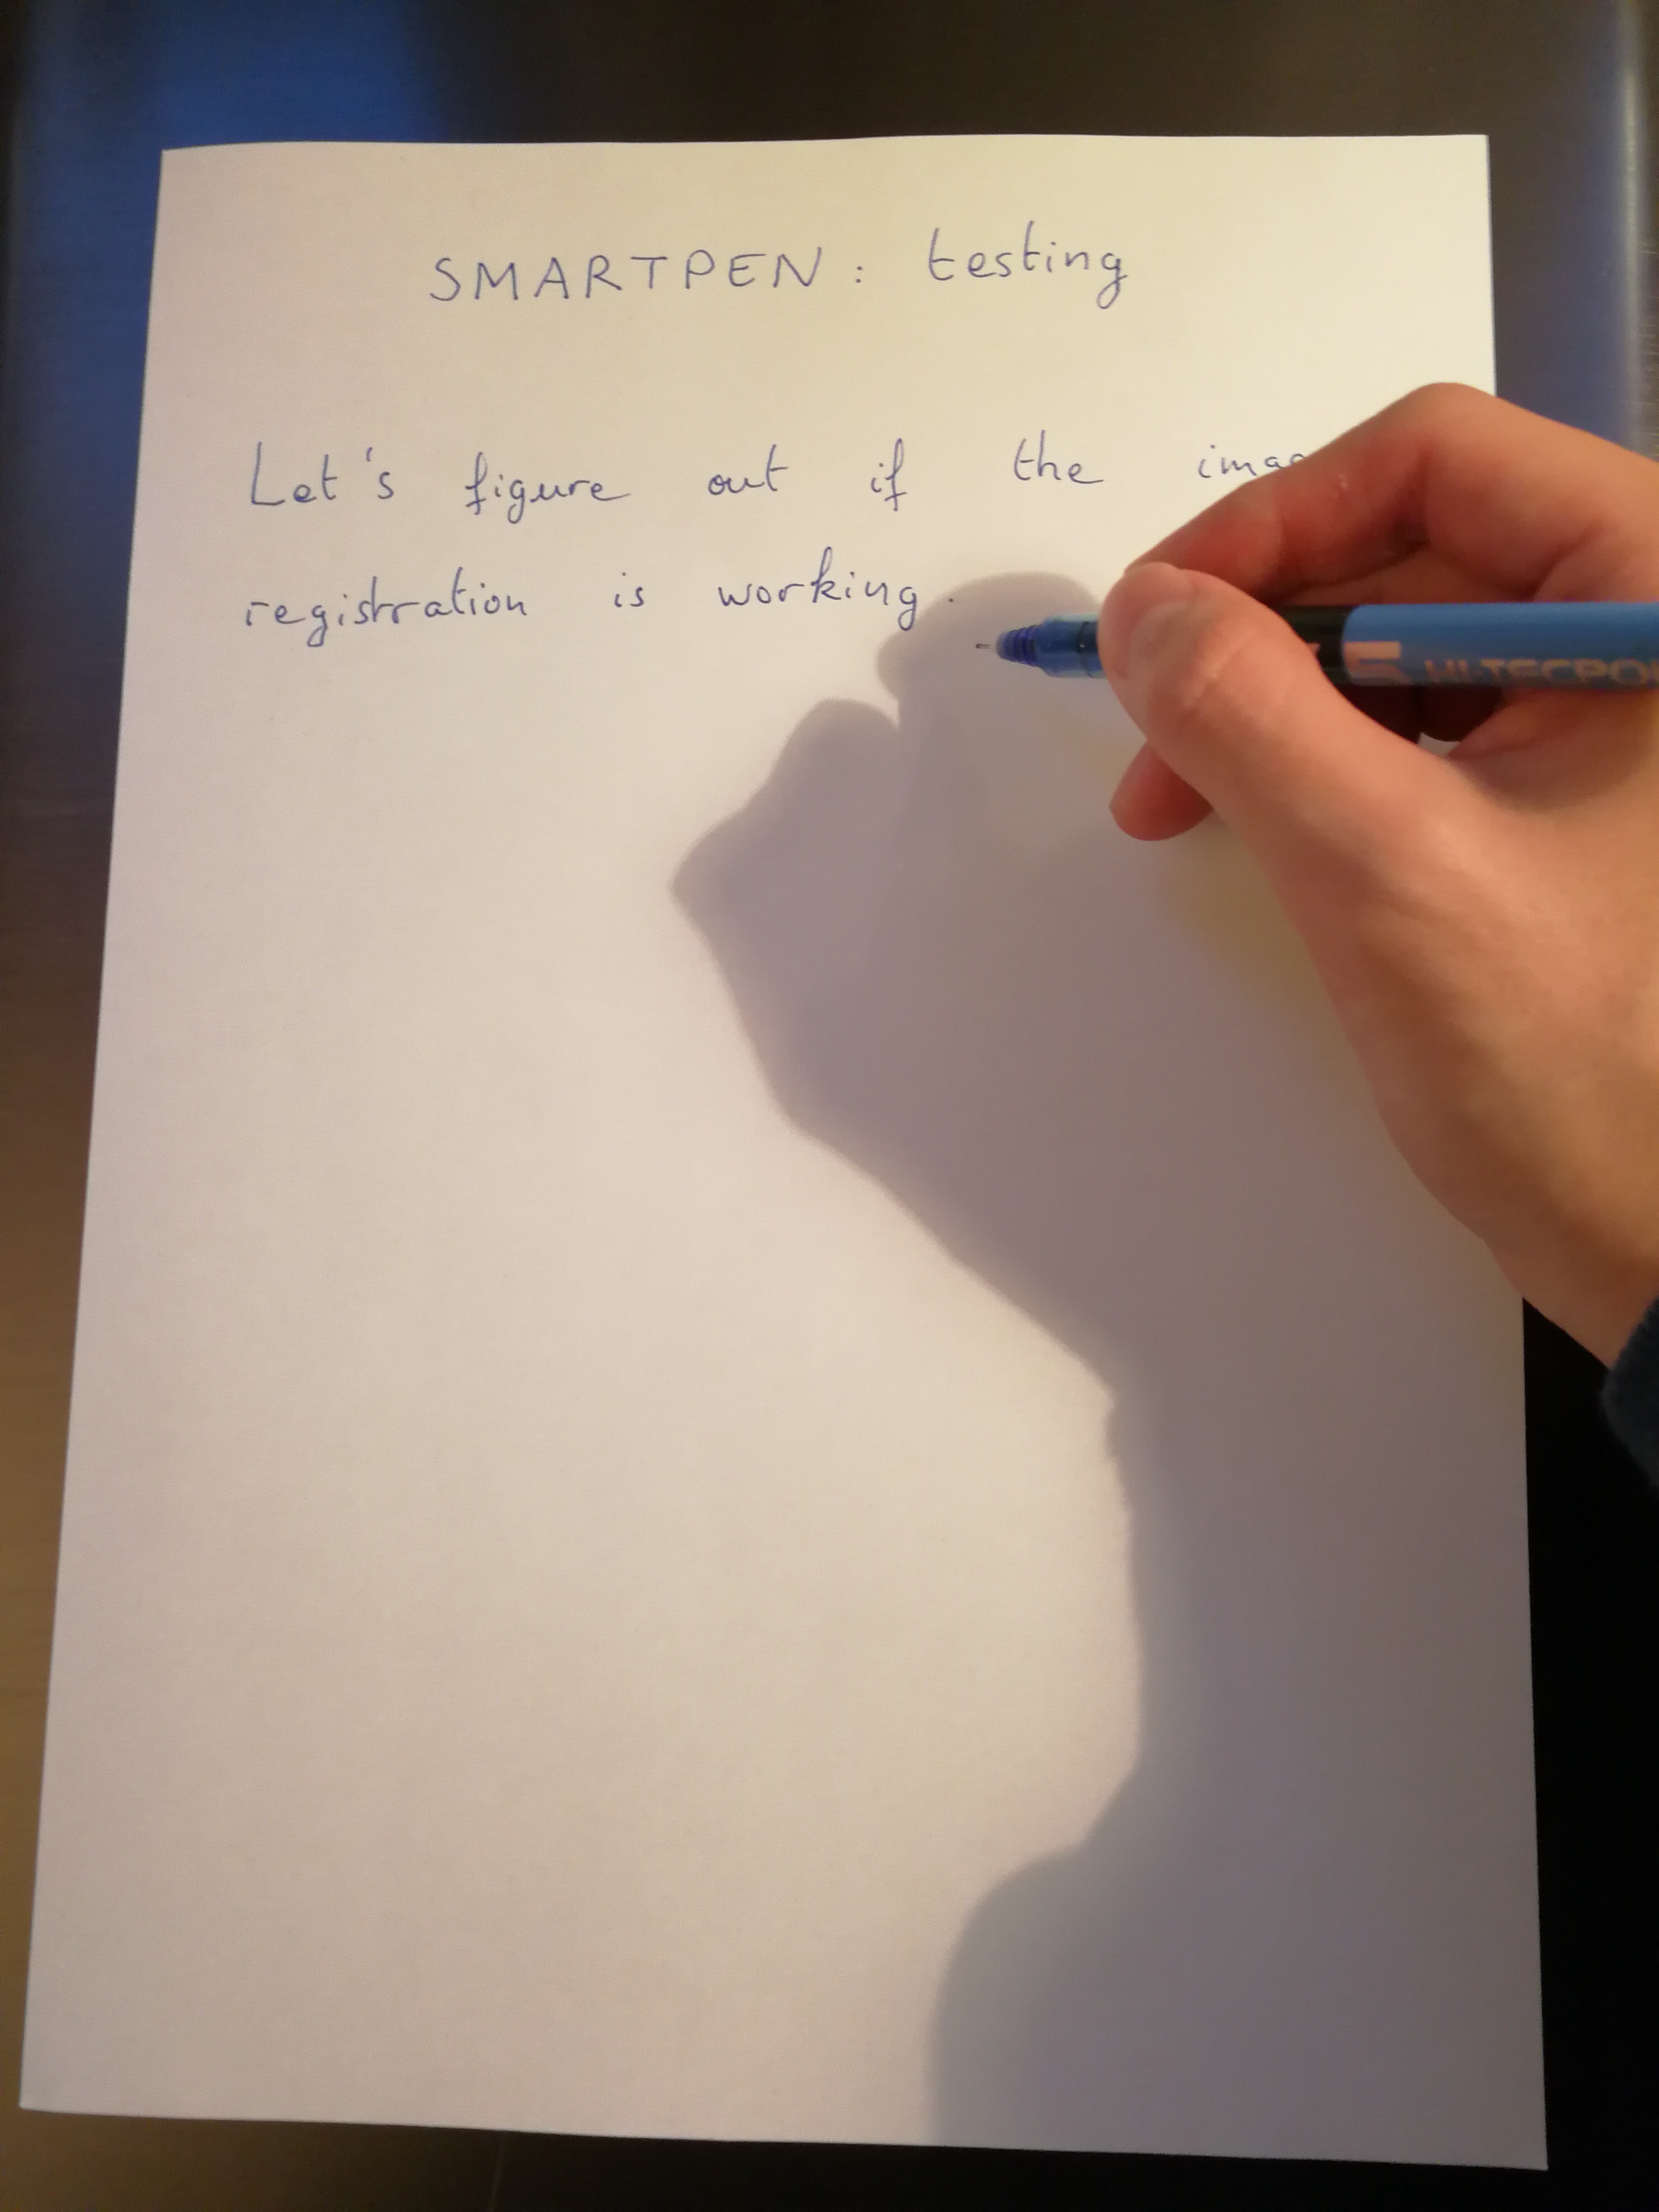 SMARTPEN: testing
Let's figure out if the
registration is working.
5 HI-TECPOI